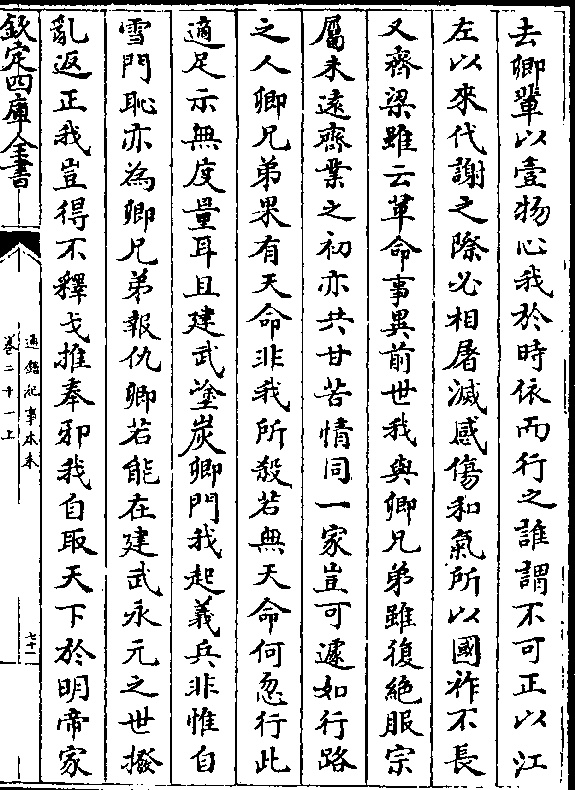 去卿輩以壹物心我於時依而行之誰謂不可正以江
左以來代謝之際必相屠滅感傷和氣所以國祚不長
又齊梁雖云革命事異前世我與卿兄弟雖復絕服宗
屬未遠齊業之初亦共甘苦情同一家豈可遽如行路
之人卿兄弟果有天命非我所殺若無天命何忽行此
適足示無度量耳且建武塗炭卿門我起義兵非惟自
雪門恥亦為卿兄弟報仇卿若能在建武永元之世撥
亂返正我豈得不釋戈推奉邪我自取天下於明帝家
欽定四庫全書
通鑑紀事本末
卷二十一上
七十二